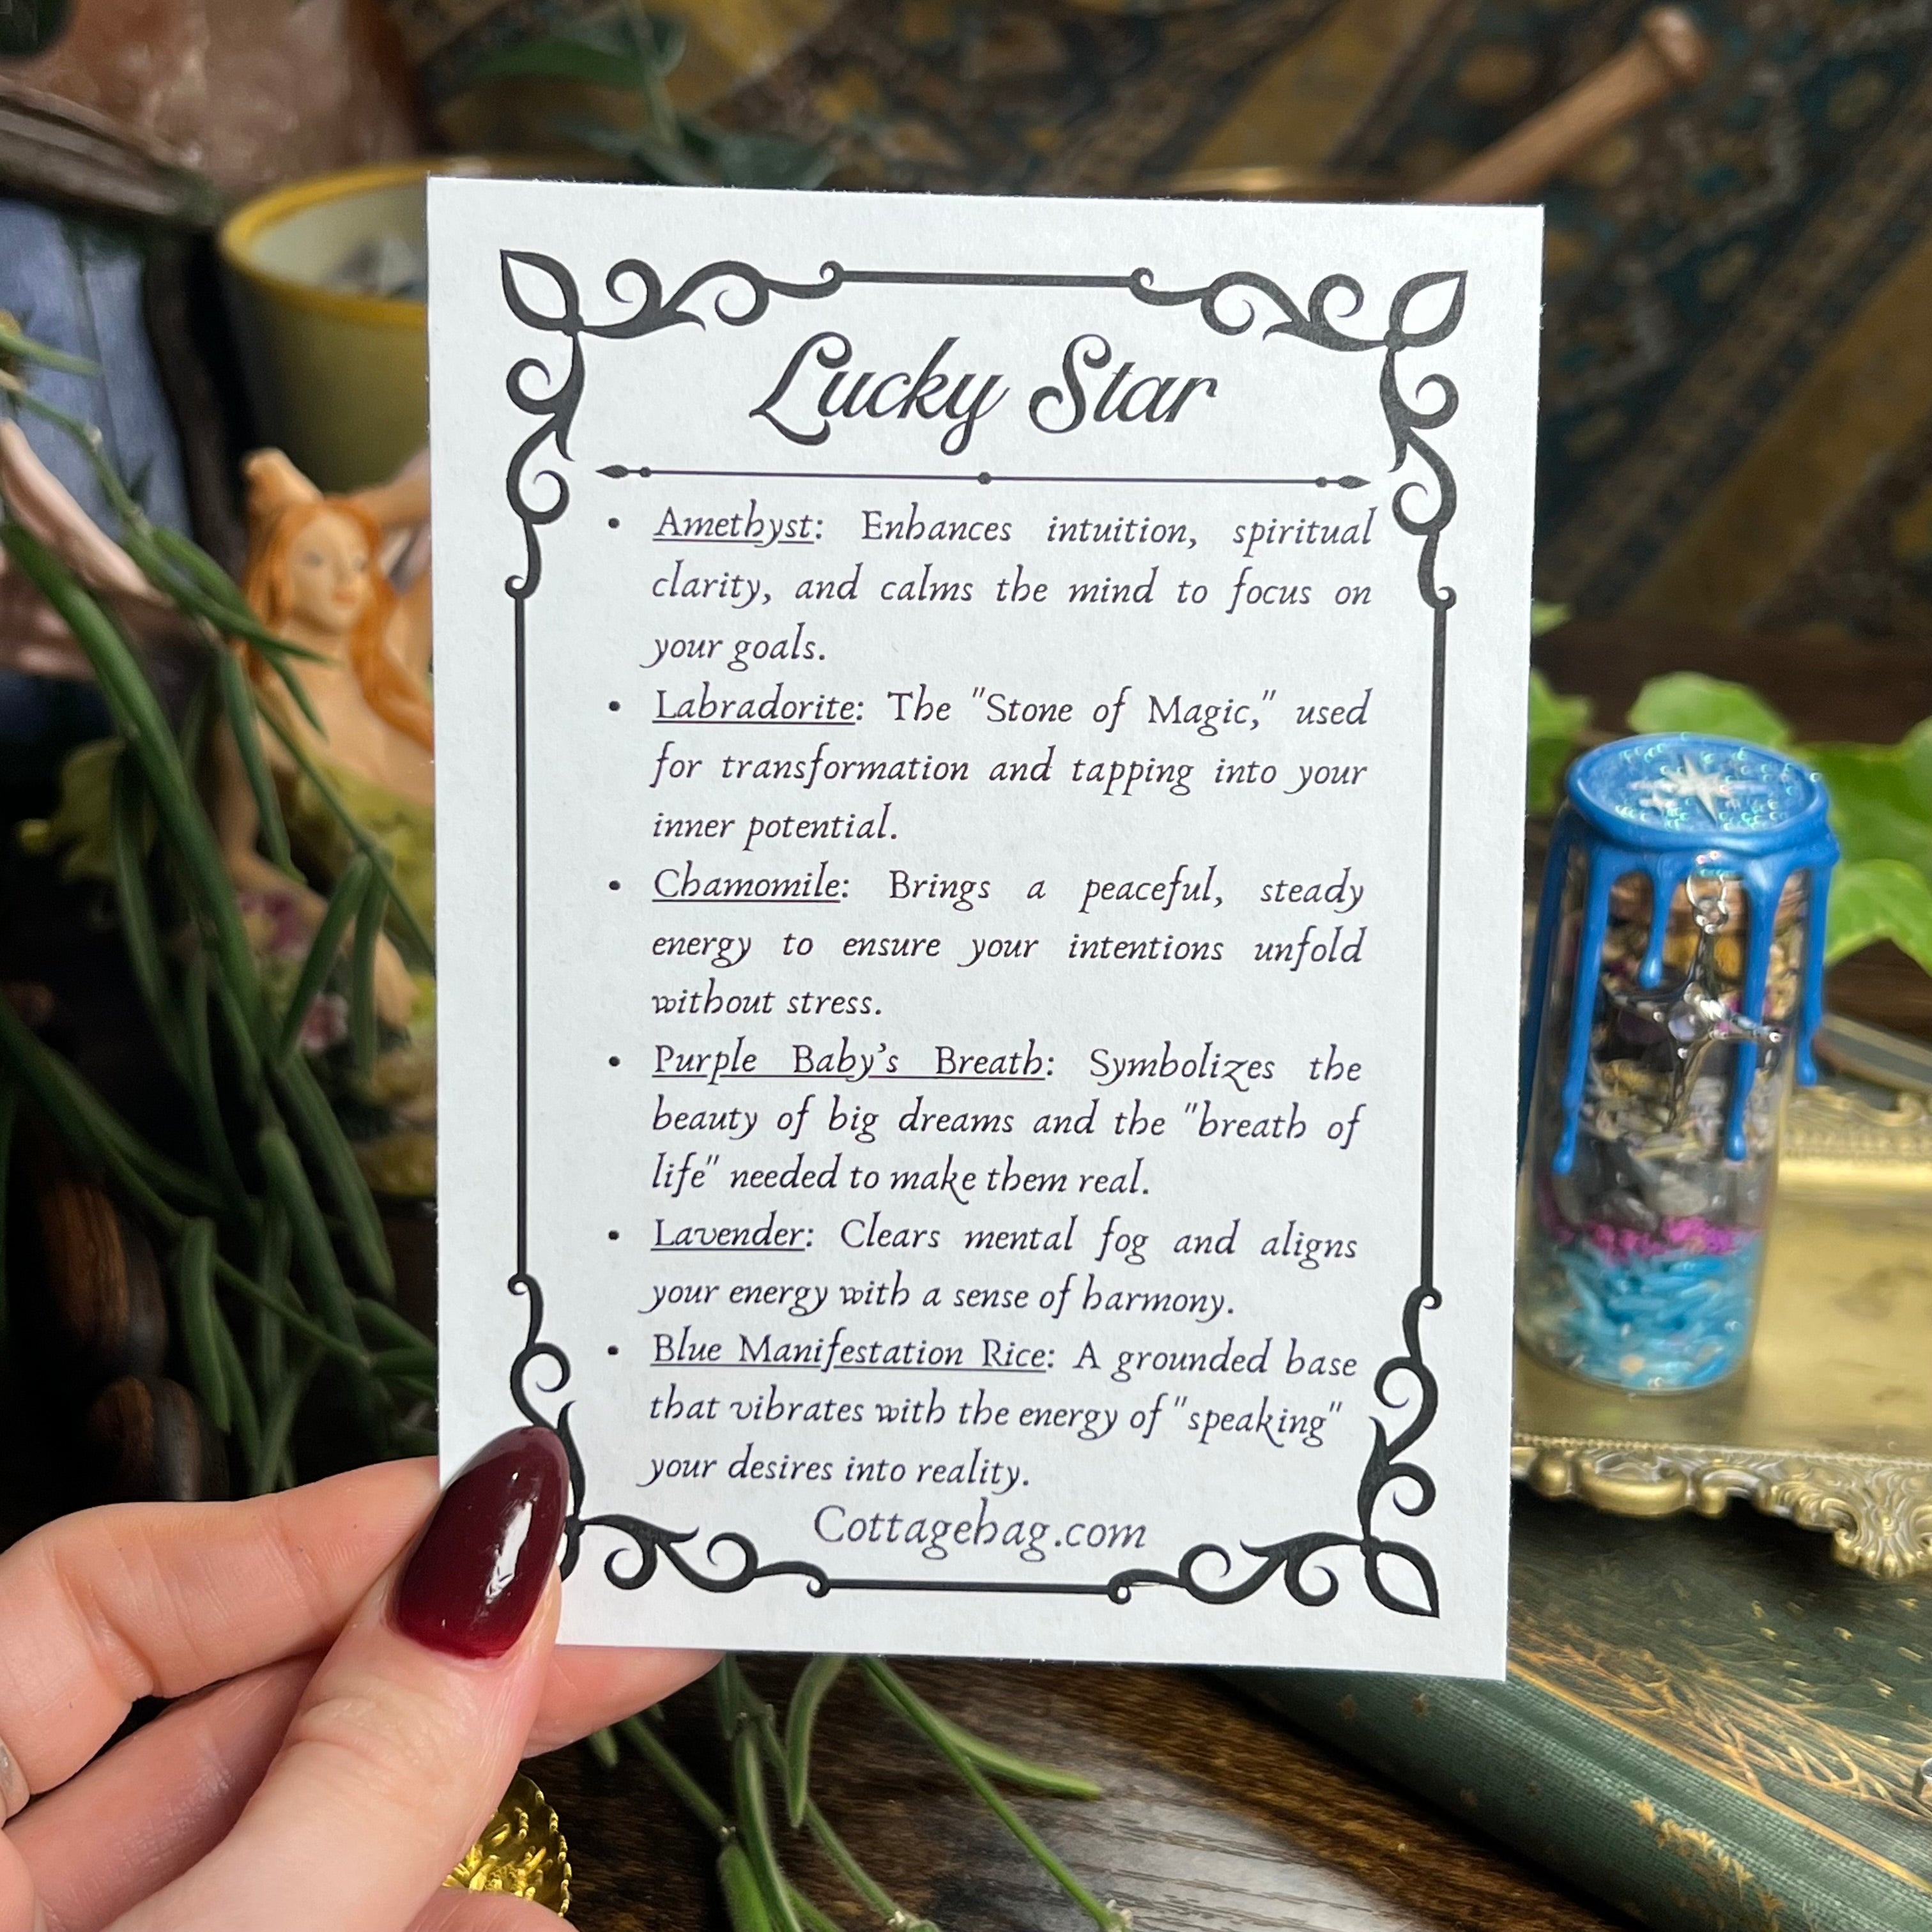 Lucky Star
• Amethyst: Enhances intuition, spiritual
clarity, and calms the mind to focus on
your goals.
• Labradorite: The "Stone of Magic," used
for transformation and tapping into your
inner potential.
• Chamomile: Brings a peaceful, steady
energy to ensure your intentions unfold
without stress.
• Purple Baby's Breath: Symbolizes the
beauty of big dreams and the "breath of
life" needed to make them real.
• Lavender: Clears mental fog and aligns
your energy with a sense of harmony.
• Blue Manifestation Rice: A grounded base
that vibrates with the energy of "speaking"
your desires into reality.
Cottagehag.com